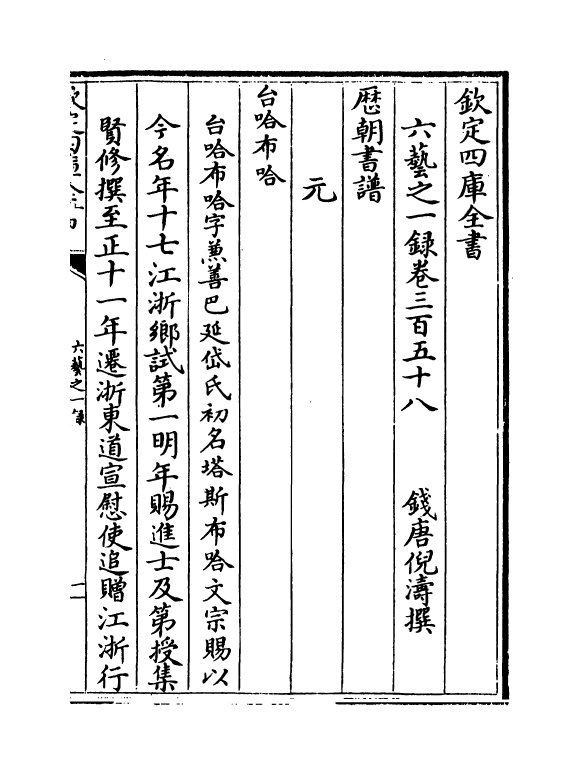 欽定四庫全書
六藝之一録卷三百五十八　　錢唐倪濤撰
歴朝書譜
元
台哈布哈
台哈布哈字蕉善巴延岱氏初名塔斯布哈文宗賜以
今名年十七江浙鄉試第一明年賜進士及第授集
賢修撰至正十一年遷浙東道宣慰使追贈江浙行
六藝之一錄